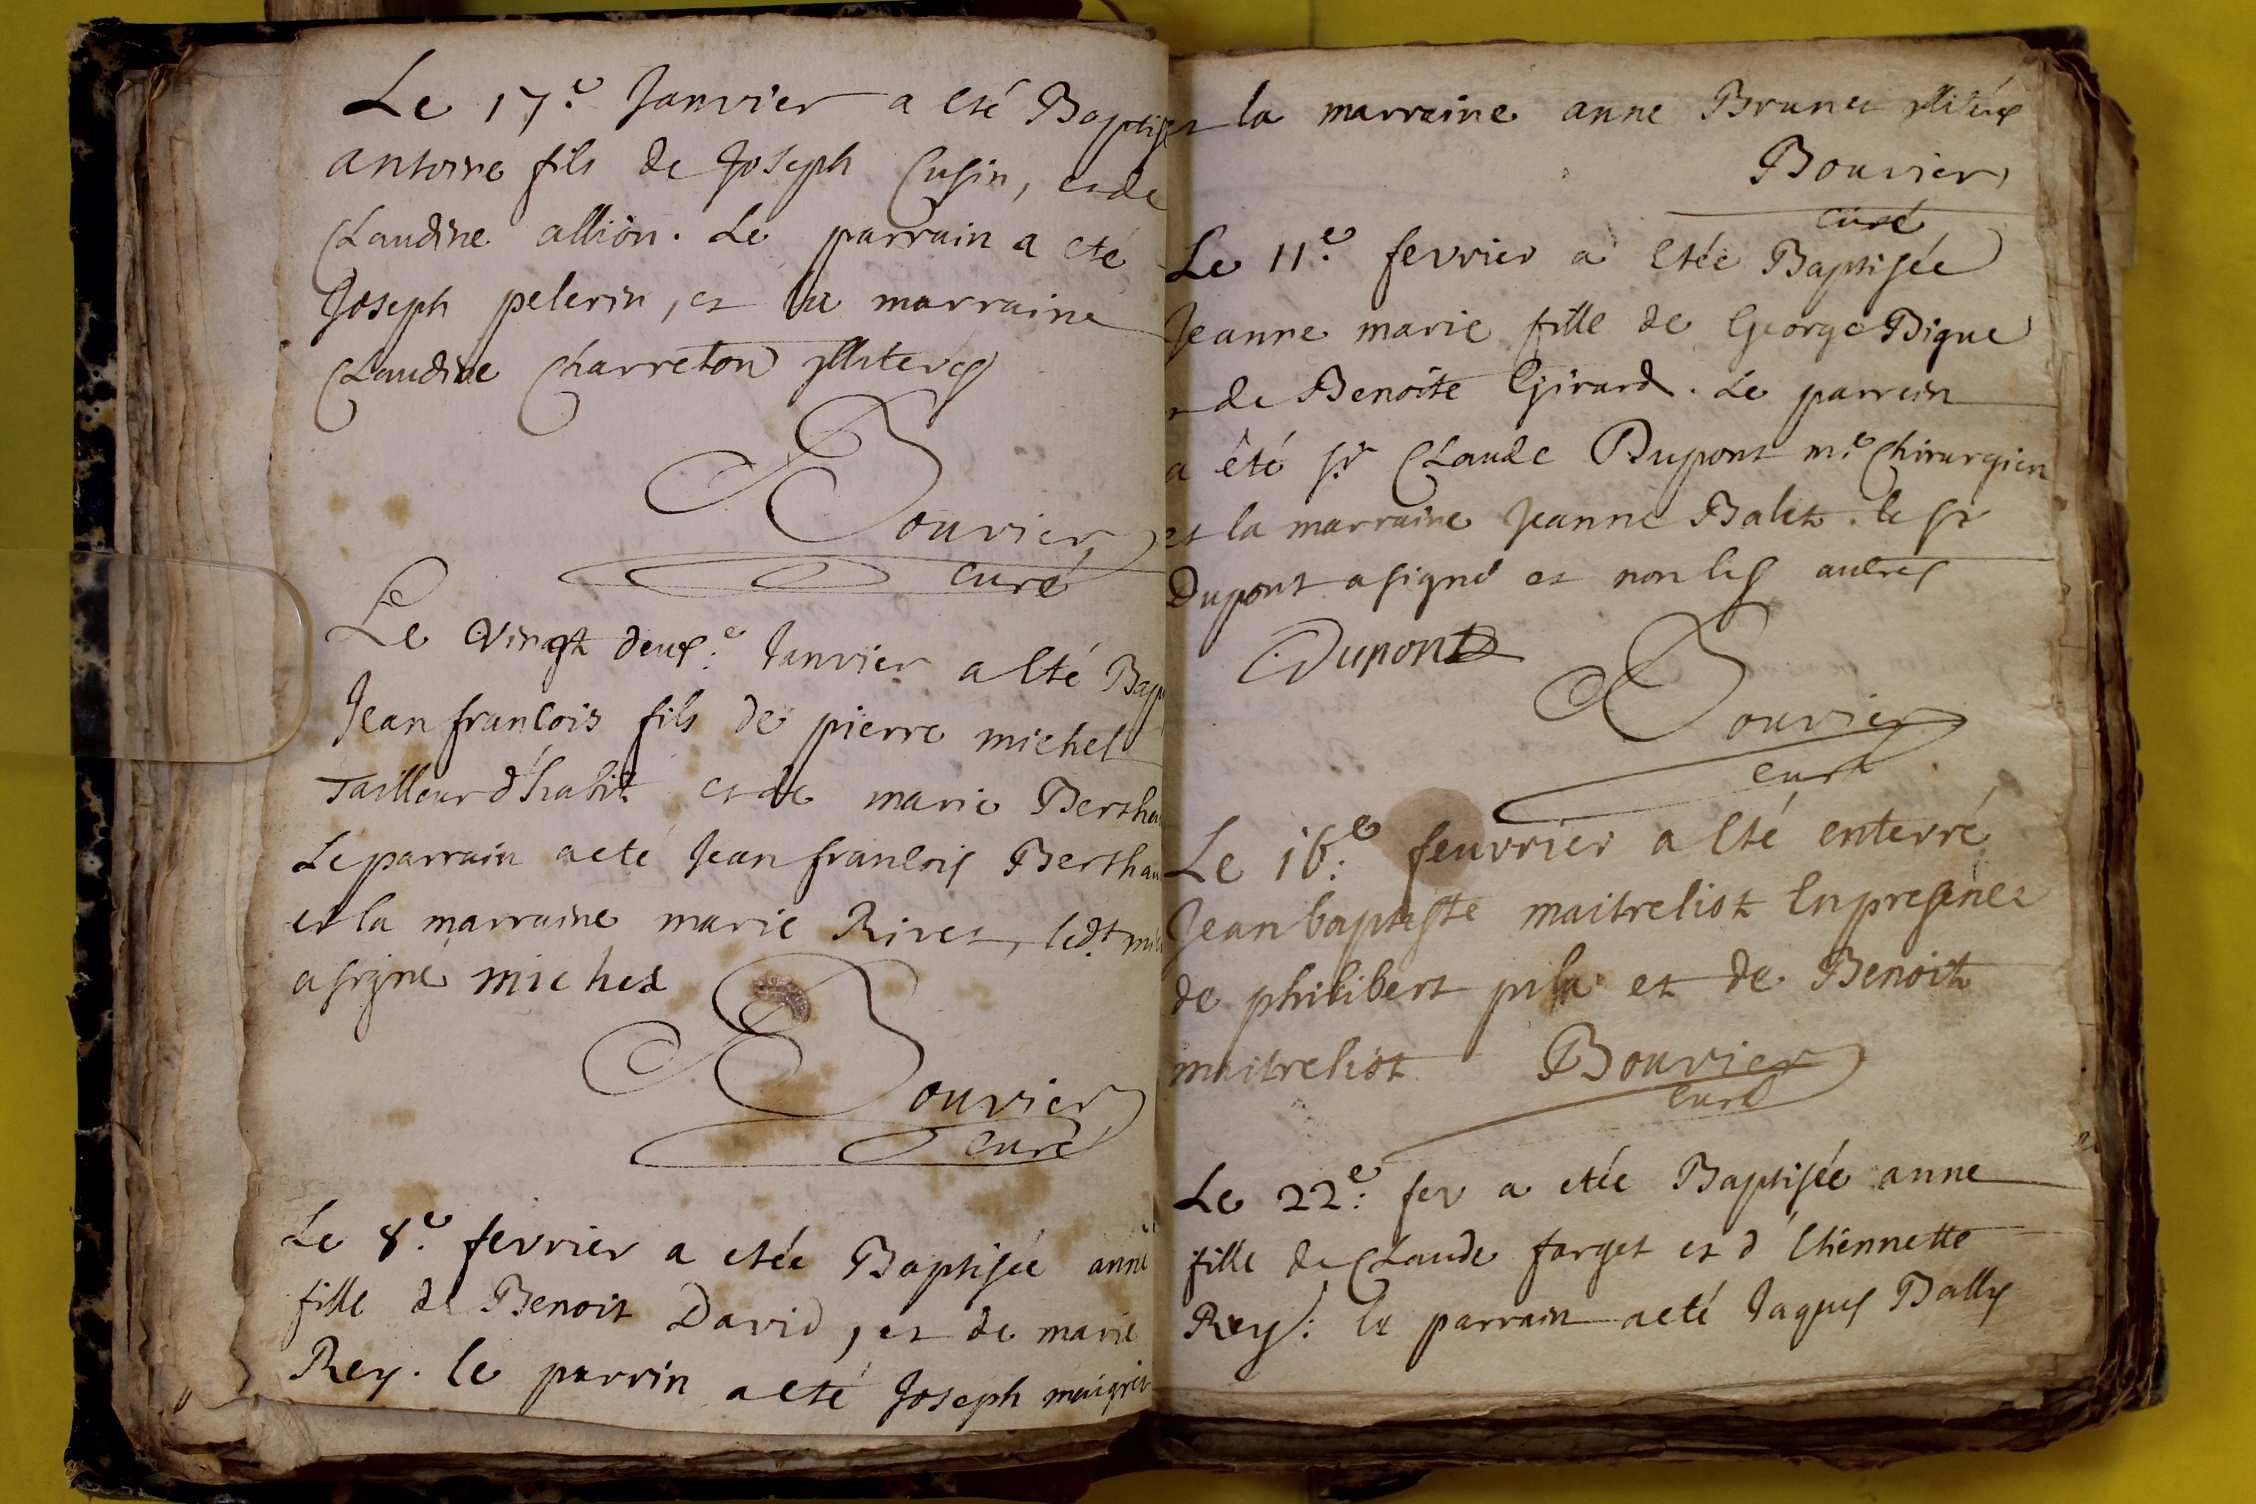 Le 17.e Janvier a eté Baptisé
antoine fils de Joseph Cusin, et de
Claudine allion. Le parrain a eté
Joseph pelerin, et la marraine
Claudine Charreton illiterés
Bouvier
curé
Le vingt deux.e Janvier a eté Bap
Jean francois fils de pierre michel
Tailleur d'habit et de marie Bertha
Le parrain a eté Jean francois Berthau
et la marraine marie Rivet, led.t mi
a signé michel
Bouvier
curé
Le 8.e fevrier a etée Baptisée anne
fille de Benoit David, et de marie
Rey. le parrin a eté Joseph maigret
et la marraine anne Brunet illiterés
Bouvier
curé
Le 11.e fevrier a etée Baptisée
Jeanne marie fille de George Bigue
et de Benoite Girard. Le parrein
a êté sr Claude Dupont m.e Chirurgien
et la marraine Jeanne Balet. le sr
Dupont a signé et non les autres
Dupont
Bouvier
curé
Le 16.e feuvrier a eté enterré
Jean baptiste maitreliot
de philibert et de Benoit
maitreliot Bouvier
curé
Le 22.e fev a etée Baptisée anne
fille de Claude farget et d'Etiennette
Rey: le parrain a eté Jaques Bally